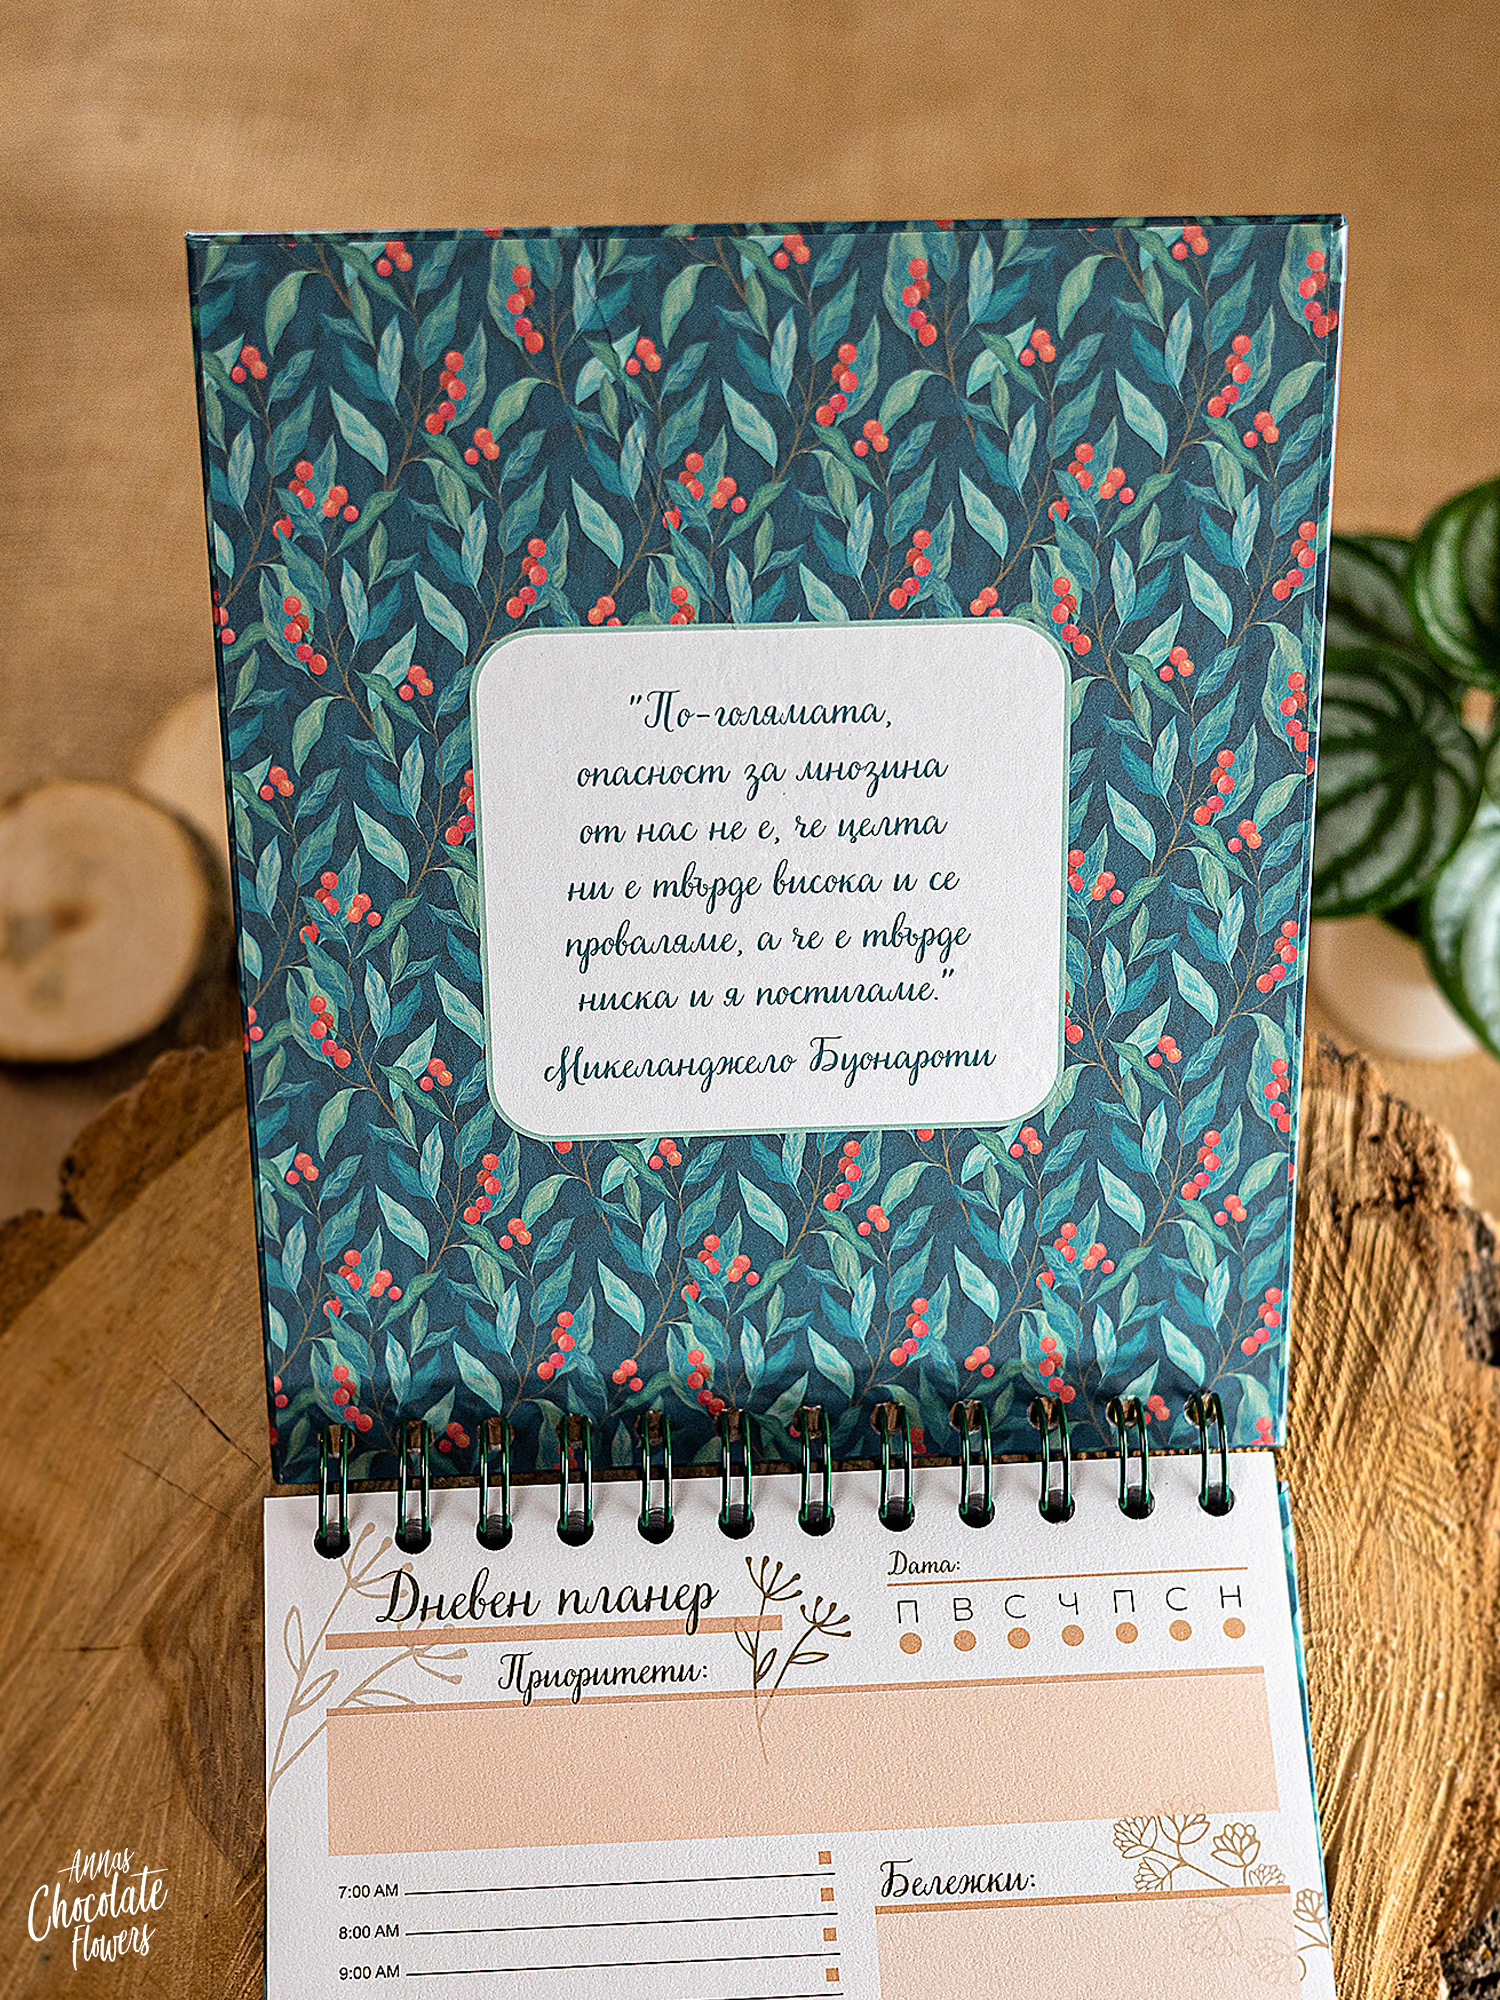 "По-голямата,
опасност за мнозина
от нас не е, че целта
ни е твърде висока и се
проваляме, а че е твърде
ниска и я постигаме."
Микеланджело Буонароти
Дневен планер
Дата:
П В С Ч П С Н
Приоритети:
7:00 AM
8:00 AM
9:00 AM
Бележки:
Annas
Chocolate
Flowers